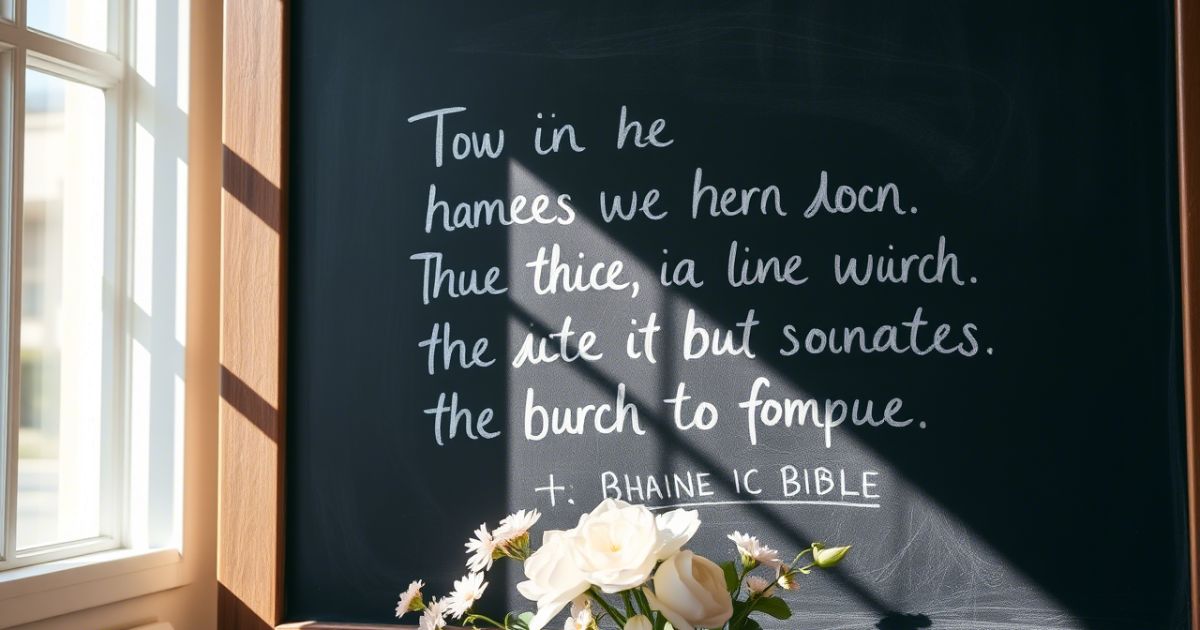 Tow in he
hamees we hern locn.
Thue thice, ia line wiirch.
the iite it but soinates.
the burch to fompue.
+. BHAINE IC BIBLE